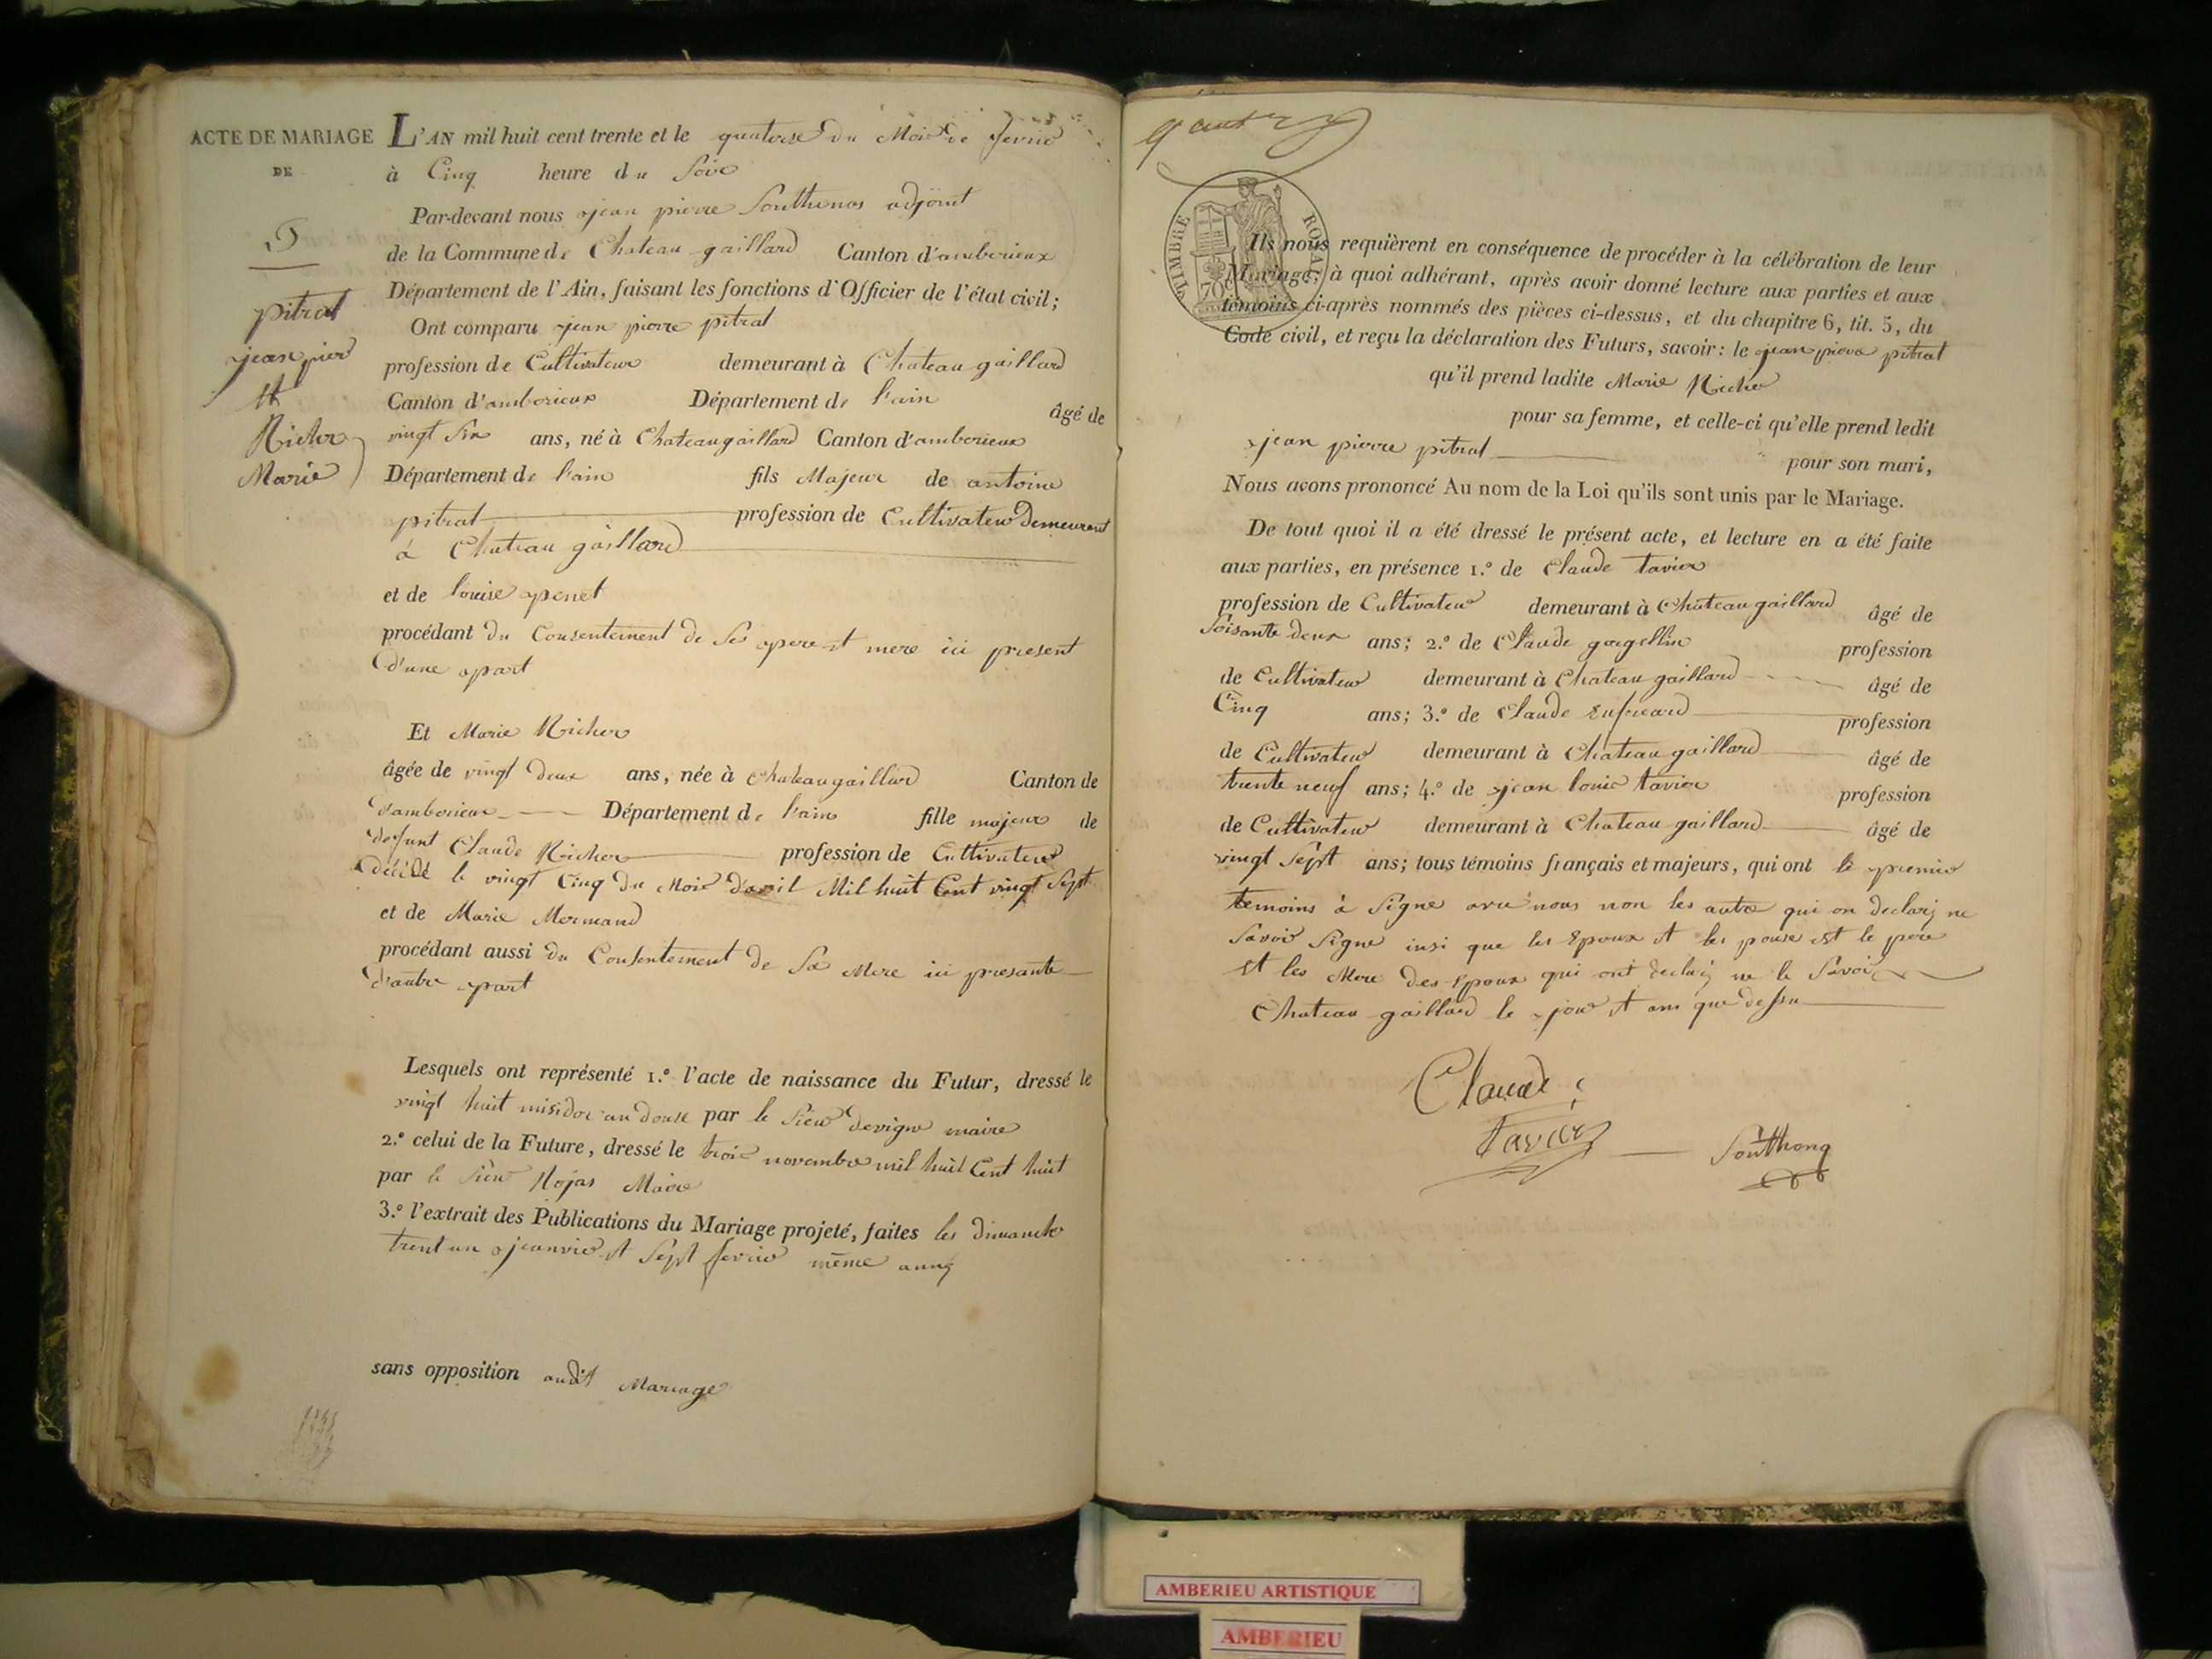 ACTE DE MARIAGE
DE
5
pitrat
jean pier
et
Richer
Marie
L'AN mil huit cent trente et le quatorse du Mois de fevrié
à Cinq heure du Soir
Par-devant nous jean pierre Southonas adjoint
de la Commune de Chateau gaillard Canton d'amberieux
Département de l'Ain, faisant les fonctions d'Officier de l'état civil;
Ont comparu jean pierre pitrat
profession de Cultivateur demeurant à Chateau gaillard
Canton d'amberieux Département de l'ain âgé de
vingt Six ans, né à Chateaugaillard Canton d'amberieux
Département de l'ain fils Majeur de antoine
pitrat profession de Cultivateur Demeurant
à Chateau gaillard
et de louise penet
procédant du Consentement de Ses pere et mere ici present
D'une part
Et Marie Richer
âgée de vingt deux ans, née à Chateaugaillard Canton de
d'amberieux Département de l'ain fille majeur de
defunt Claude Richer profession de Cultivateur
décédé le vingt Cinq du Mois d'avril Mil huit Cent vingt Sept
et de Marie Mermand
procédant aussi du Consentement de Sa Mere ici presante
d'autre part
Lesquels ont représenté 1.º l'acte de naissance du Futur, dressé le
vingt huit misidor an douse par le Sieur devigne maire
2.º celui de la Future, dressé le trois novembre mil huit Cent huit
par le Sieur Mojas Maire
3.º l'extrait des Publications du Mariage projeté, faites les dimanche
trent un jeanvier et Sept fevrier même anné
sans opposition audit Mariage
TIMBRE ROYAL
70
Ils nous requièrent en conséquence de procéder à la célébration de leur
Mariage; à quoi adhérant, après avoir donné lecture aux parties et aux
témoins ci-après nommés des pièces ci-dessus, et du chapitre 6, tit. 5, du
Code civil, et reçu la déclaration des Futurs, savoir: le jean pierre pitrat
qu'il prend ladite Marie Richer
pour sa femme, et celle-ci qu'elle prend ledit
jean pierre pitrat pour son mari,
Nous avons prononcé Au nom de la Loi qu'ils sont unis par le Mariage.
De tout quoi il a été dressé le présent acte, et lecture en a été faite
aux parties, en présence 1.º de Claude tavier
profession de Cultivateur demeurant à Chateau gaillard âgé de
Soisante deux ans; 2.º de Claude gorgellin profession
de Cultivateur demeurant à Chateau gaillard âgé de
Cinq ans; 3.º de Claude profession
de Cultivateur demeurant à Chateau gaillard âgé de
trente neuf ans; 4.º de jean louis tavier profession
de Cultivateur demeurant à Chateau gaillard âgé de
vingt Sept ans; tous témoins français et majeurs, qui ont le premier
temoins à Signe avec nous non les autre qui on declaré ne
Savoir Signe insi que les Epoux et les pouse est le pere
et les Mere des Epoux qui ont declaré ne le Savoir
Chateau gaillard le jour et ans que dessu
Claude
Tavier
Southonas
AMBERIEU ARTISTIQUE
AMBERIEU